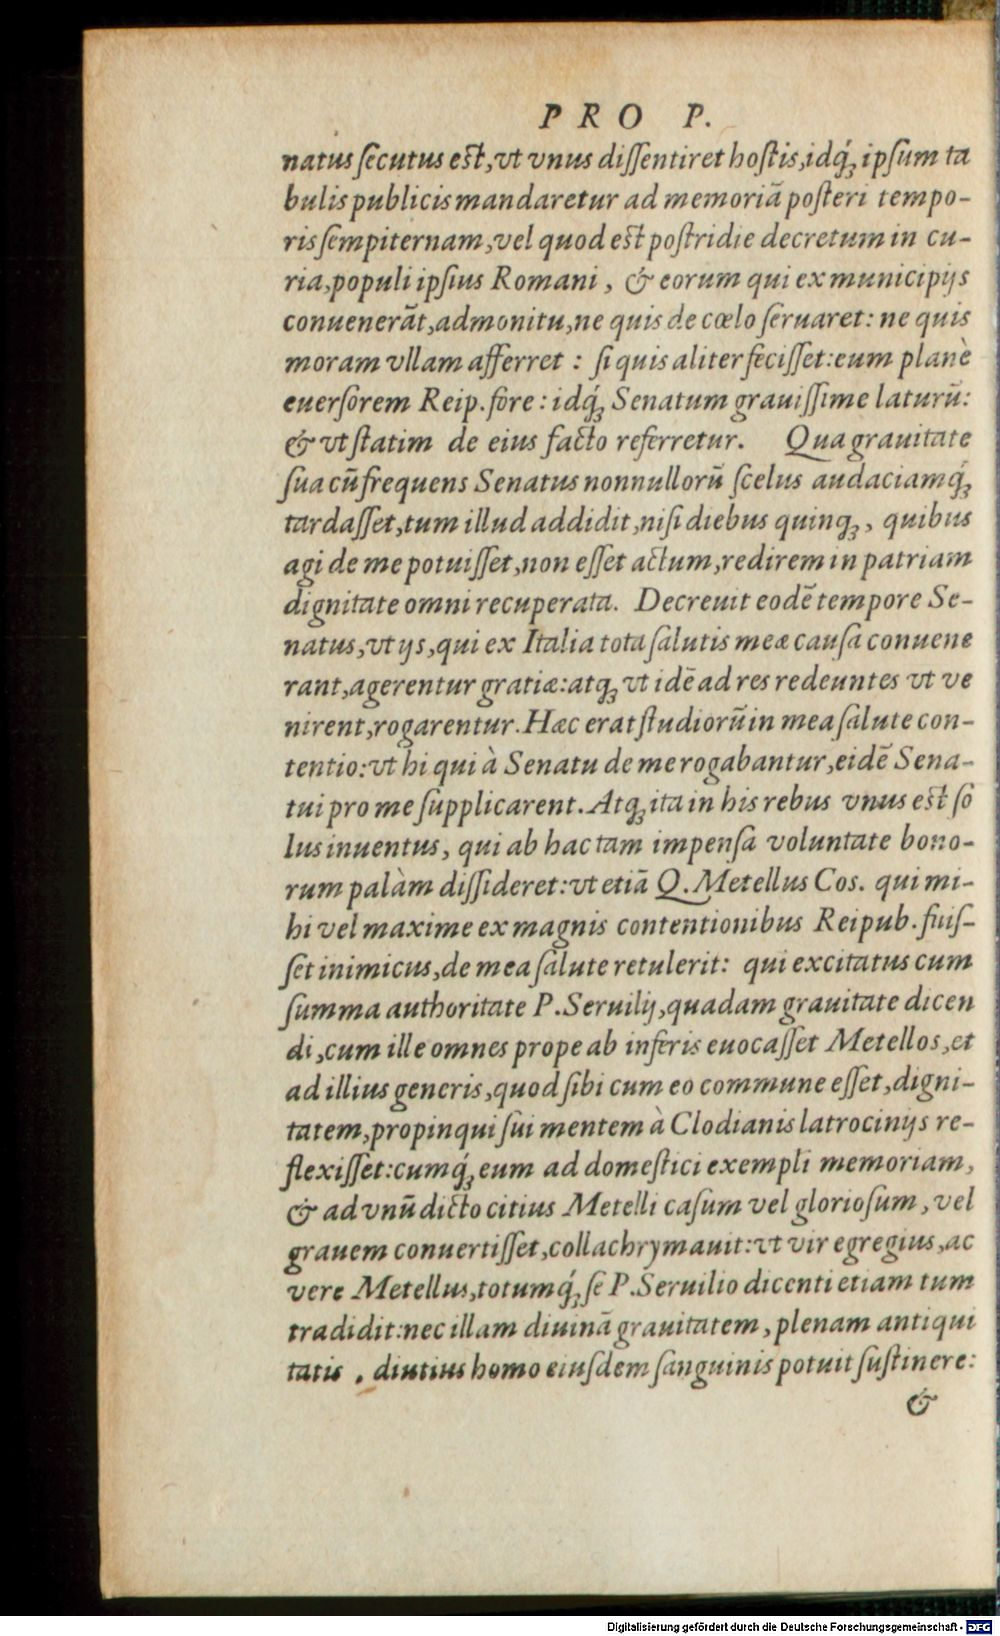 PRO P.
natus ſecutus eſt, vt vnus diſſentiret hoſtis, idq́ꝫ ipſum ta
bulis publicis mandaretur ad memoriã poſteri tempo-
ris ſempiternam, vel quod eſt poſtridie decretum in cu-
ria, populi ipſius Romani, & eorum qui ex municipijs
conuenerãt, admonitu, ne quis de cœlo ſeruaret: ne quis
moram vllam afferret: ſi quis aliter feciſſet: eum planè
euerſorem Reip. fore: idq́ꝫ Senatum grauiſſime laturũ:
& vt ſtatim de eius facto referretur. Qua grauitate
ſua cũ frequens Senatus nonnullorũ ſcelus audaciamq́ꝫ
tardaſſet, tum illud addidit, niſi diebus quinqꝫ, quibus
agi de me potuiſſet, non eſſet actum, redirem in patriam
dignitate omni recuperata. Decreuit eodẽ tempore Se-
natus, vt ijs, qui ex Italia tota ſalutis meæ cauſa conuene
rant, agerentur gratiæ: atqꝫ vt idẽ ad res redeuntes vt ve
nirent, rogarentur. Hæc erat ſtudiorũ in mea ſalute con-
tentio: vt hi qui à Senatu de me rogabantur, eidẽ Sena-
tui pro me ſupplicarent. Atqꝫ ita in his rebus vnus eſt ſo
lus inuentus, qui ab hac tam impenſa voluntate bono-
rum palàm diſſideret: vt etiã Q. Metellus Cos. qui mi-
hi vel maxime ex magnis contentionibus Reipub. fuiſ-
ſet inimicus, de mea ſalute retulerit: qui excitatus cum
ſumma authoritate P. Seruilij, quadam grauitate dicen
di, cum ille omnes prope ab inferis euocaſſet Metellos, et
ad illius generis, quod ſibi cum eo commune eſſet, digni-
tatem, propinqui ſui mentem à Clodianis latrocinijs re-
flexiſſet: cumq́ꝫ eum ad domeſtici exempli memoriam,
& ad vnũ dicto citius Metelli caſum vel glorioſum, vel
grauem conuertiſſet, collachrymauit: vt vir egregius, ac
vere Metellus, totumq́ꝫ ſe P. Seruilio dicenti etiam tum
tradidit: nec illam diuinã grauitatem, plenam antiqui
tatis, diutius homo eiuſdem ſanguinis potuit ſuſtinere:
&
Digitalisierung gefördert durch die Deutsche Forschungsgemeinschaft - DFG